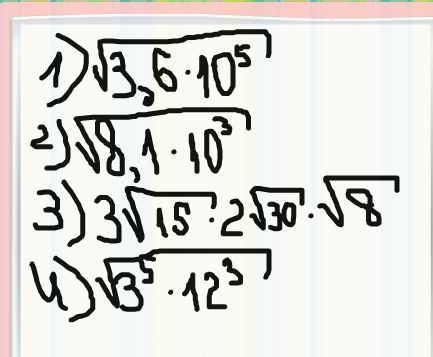 1) √3,6·10⁵
2) √8,1·10³
3) 3√15·2√30·√8
4) √3⁵·12³